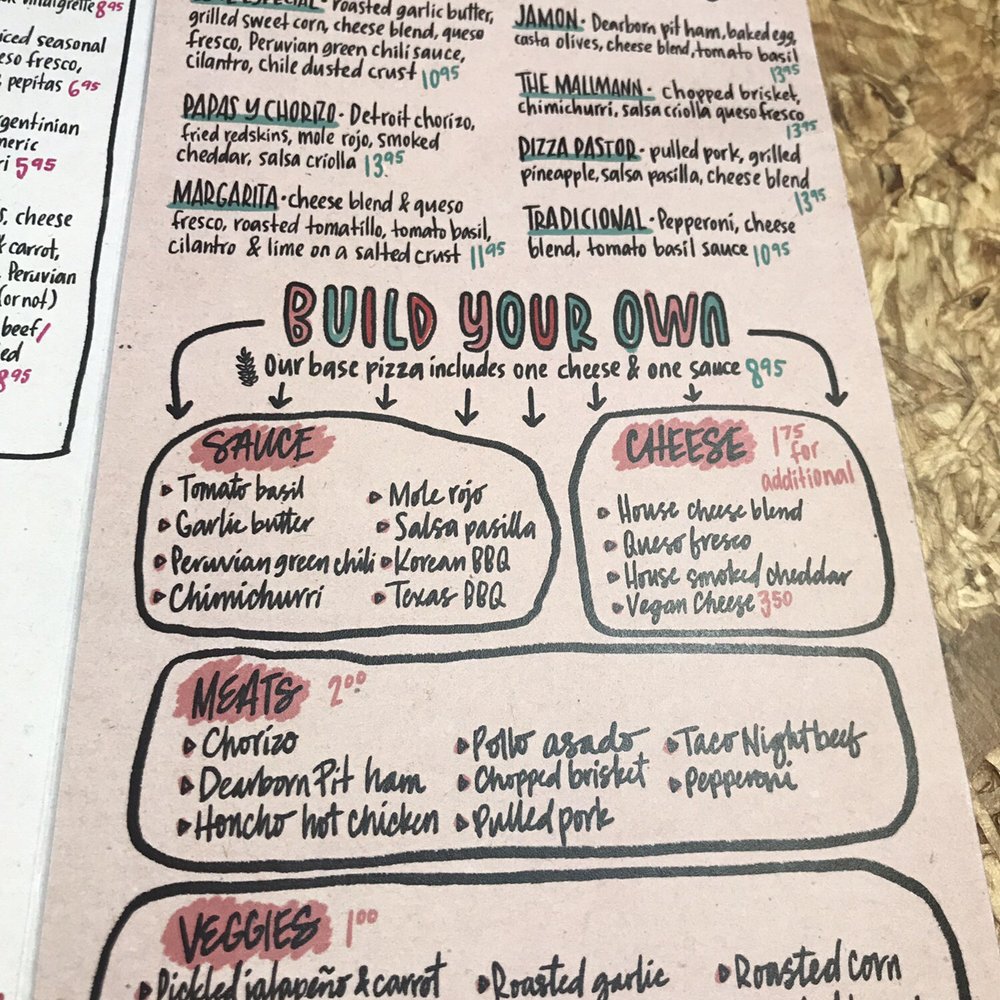 vinaigrette 8.95
seasonal
queso fresco,
pepitas 6.95
5.95
cheese
carrot,
Peruvian
(or not)
beef/
8.95
roasted garlic butter,
grilled sweet corn, cheese blend, queso
fresco, Peruvian green chili sauce,
cilantro, chile dusted crust 10.95
PAPAS Y CHORIZO · Detroit chorizo,
fried redskins, mole rojo, smoked
cheddar, salsa criolla 13.95
MARGARITA · cheese blend & queso
fresco, roasted tomatillo, tomato basil,
cilantro & lime on a salted crust 11.95
JAMON · Dearborn pit ham, baked egg,
casta olives, cheese blend, tomato basil
13.95
THE MALLMANN · chopped brisket,
chimichurri, salsa criolla queso fresco
13.95
PIZZA PASTOR · pulled pork, grilled
pineapple, salsa pasilla, cheese blend
13.95
TRADICIONAL · Pepperoni, cheese
blend, tomato basil sauce 10.95
BUILD YOUR OWN
Our base pizza includes one cheese & one sauce 8.95
SAUCE
Tomato basil
Garlic butter
Peruvian green chili
Chimichurri
Mole rojo
Salsa pasilla
Korean BBQ
Texas BBQ
CHEESE 1.75 for additional
House cheese blend
Queso fresco
House smoked cheddar
Vegan Cheese 3.50
MEATS 2.00
Chorizo
Dearborn Pit ham
Honcho hot chicken
Pollo asado
Chopped brisket
Pulled pork
Taco Night beef
Pepperoni
VEGGIES 1.00
Pickled jalapeño & carrot
Roasted garlic
Roasted corn